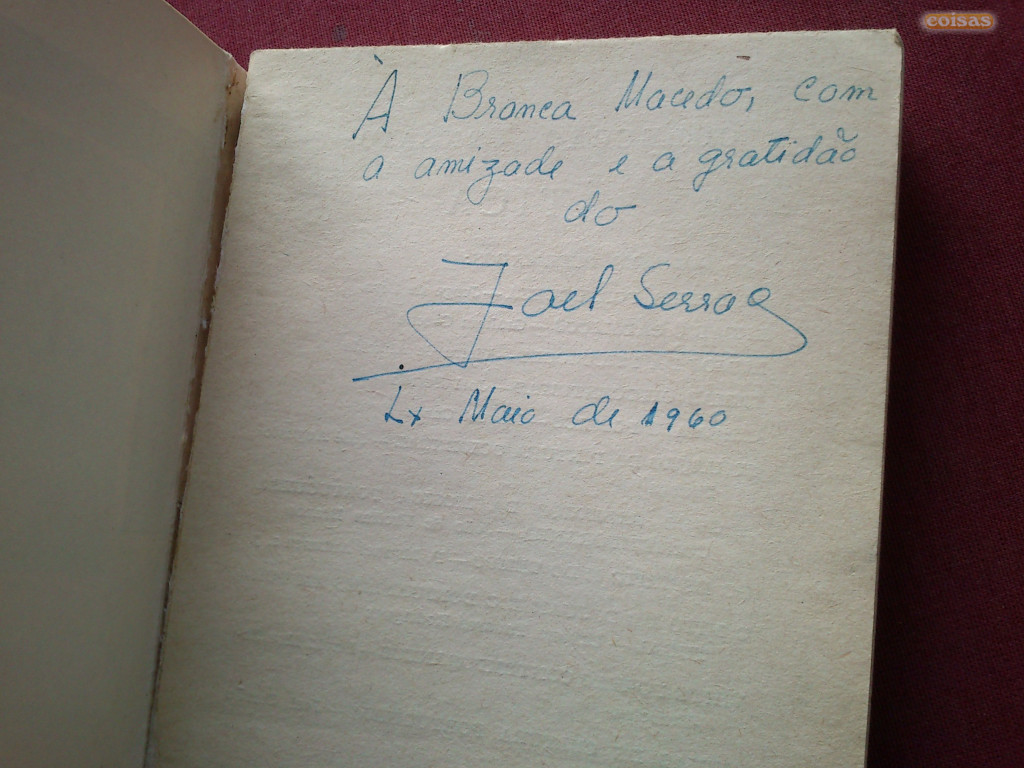 coisas
À Branca Macedo, com
a amizade e a gratidão
do
Joel Serrão
Lx Maio de 1960